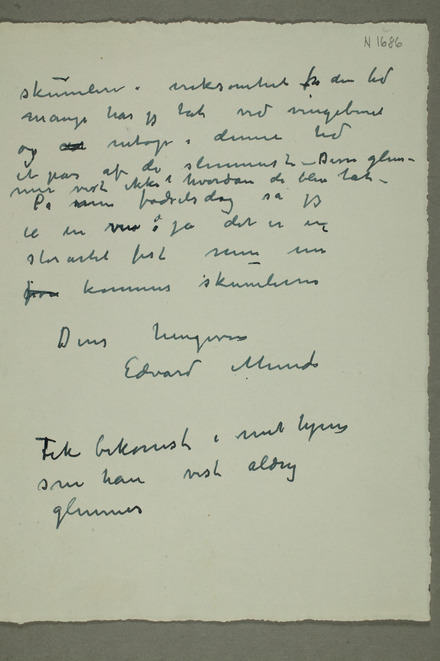 N 1686
skumlere virksomhet fra den tid
mange har jeg tat ved vingebenet
og uttage i denne tid
et par af de slemmeste – Deres glem-
mer vist ikke hvordan de blev tat –
På min fødselsdag sa jeg
ja det er en
storartet fest men nu
kommer skumlerne
Deres hengivne
Edvard Munch
Fik bekomst i mit hjem
som han vist aldrig
glemmer